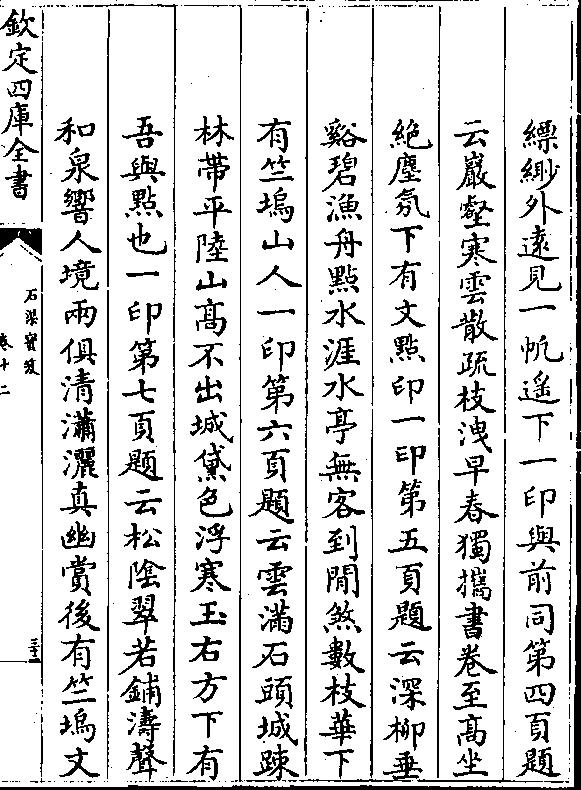 縹緲外遠見一帆遙下一印與前同第四頁題
云巖壑寒雲散疏枝洩早春獨攜書卷至高坐
絶塵氛下有文點印一印第五頁題云深柳垂
谿碧漁舟點水涯水亭無客到閒煞數枝華下
有竺塢山人一印第六頁題云雲滿石頭城踈
林帶平陸山髙不出城黛色浮寒玉右方下有
吾與點也一印第七頁題云松陰翠若鋪濤聲
和泉響人境兩俱清瀟灑真幽賞後有竺塢文
欽定四庫全書
石渠寳笈
卷十二